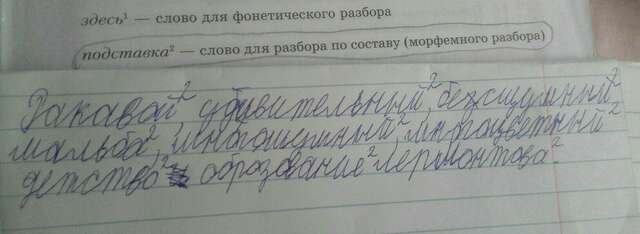 здесь¹ — слово для фонетического разбора
подставка² — слово для разбора по составу (морфемного разбора)
Ракавой², удивительный², бесшумный²
мальба², многошумный², многоцветный²
детство² образование² лермонтова²